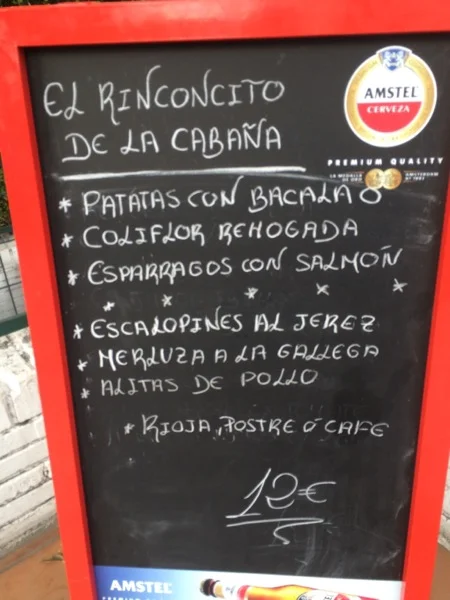 EL RINCONCITO
DE LA CABAÑA
AMSTEL
CERVEZA
PREMIUM QUALITY
LA MEDALLA DE ORO AMSTERDAM
* PATATAS CON BACALAO
* COLIFLOR REHOGADA
* ESPARRAGOS CON SALMÓN
* * * * *
* ESCALOPINES AL JEREZ
* MERLUZA A LA GALLEGA
* ALITAS DE POLLO
* RIOJA, POSTRE Ó CAFE
12€
AMSTEL